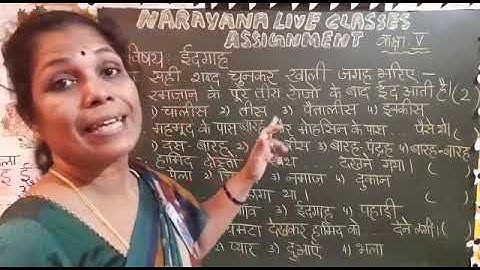 NARAYANA LIVE CLASSES
ASSIGNMENT कक्षा V
विषय: ईदगाह
सही शब्द चुनकर खाली जगह भरिए -
रमज़ान के पूरे तीस रोज़ों के बाद ईद आती है। (2)
1) चालीस 2) तीस 3) पैंतालीस 4) इक्कीस
महमूद के पास बारह मोहसिन के पास ... पैसे थे। ( )
1) दस-बारह 2) 3) बारह-पंद्रह 4) बारह-बारह
हामिद दोस्तों देखने गया। ( )
मेला 3) नमाज 4) दुकान
लगा था। ( )
3) ईदगाह 4) पहाड़ी
चिमटा देखकर हामिद को ... देने लगी। ( )
2) प्यार 3) दुआएँ 4) भला